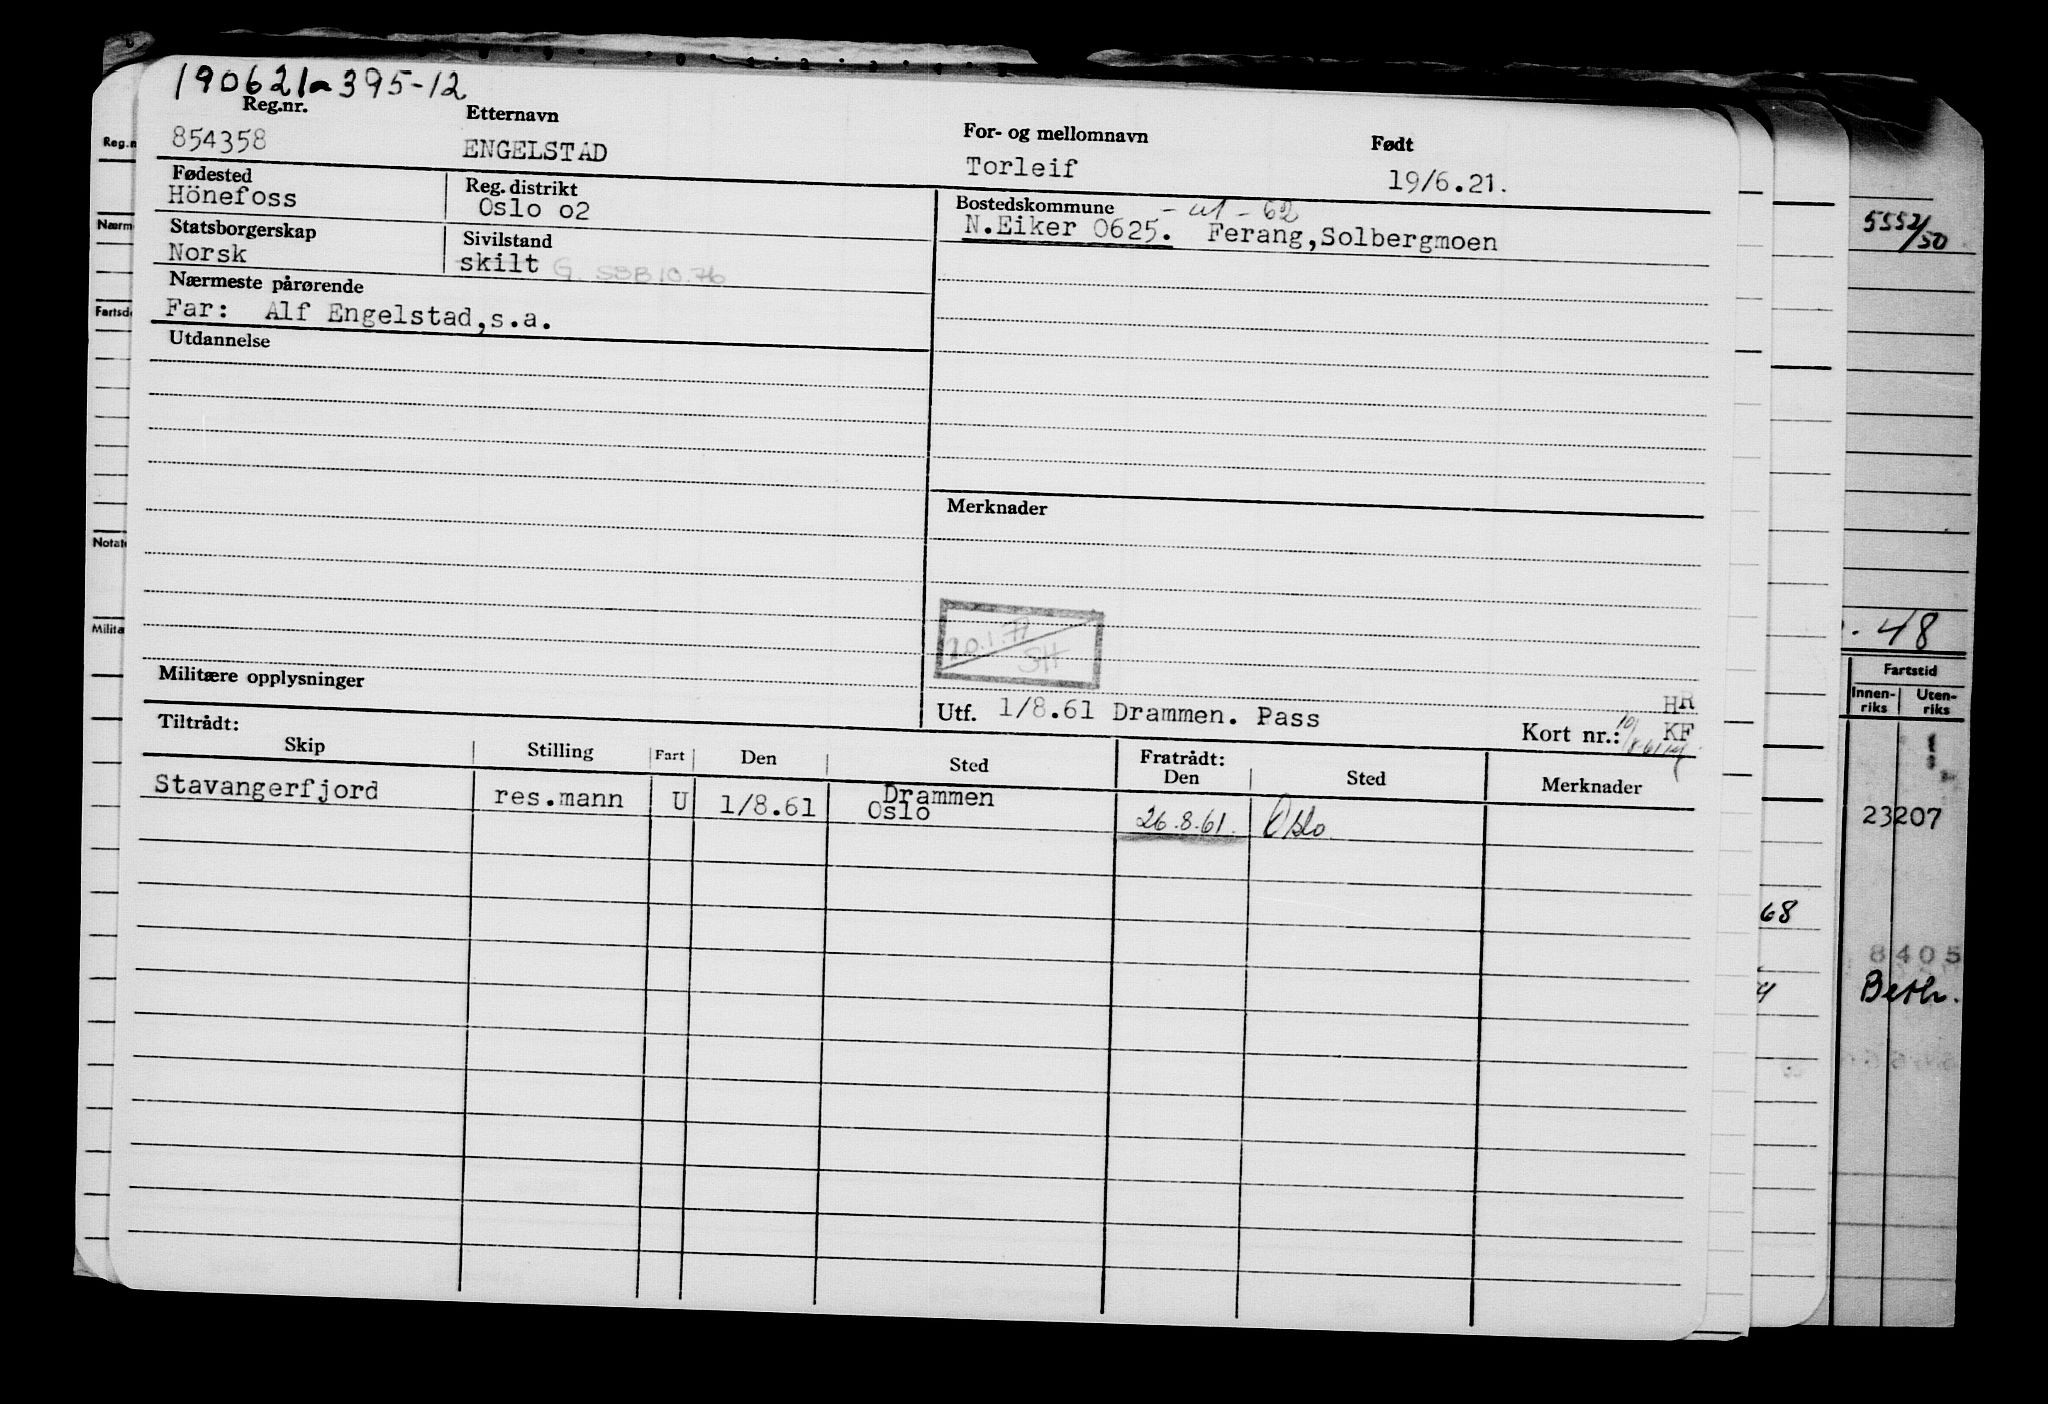 190621a395-12
Reg.nr. Etternavn For- og mellomnavn Født
854358 ENGELSTAD Torleif 19/6.21.
Fødested Reg. distrikt Bostedskommune - ut - 62
Hönefoss Oslo o2 N.Eiker 0625. Ferang,Solbergmoen
Statsborgerskap Sivilstand
Norsk skilt G. SBB 10.76
Nærmeste pårørende
Far: Alf Engelstad,s.a.
Utdannelse
Merknader
20.1.77
SH
Militære opplysninger
HR
Utf. 1/8.61 Drammen. Pass Kort nr.: KF
Tiltrådt: Fratrådt:
Skip Stilling Fart Den Sted Den Sted Merknader
Stavangerfjord res.mann U 1/8.61 Drammen
Oslo 26.8.61. Oslo.
5552/50
. 48
Fartstid
Innen-riks Uten-riks
23207
68
8405
Beth.
Reg.n
Nærm
Fartsd
Notat
Milita